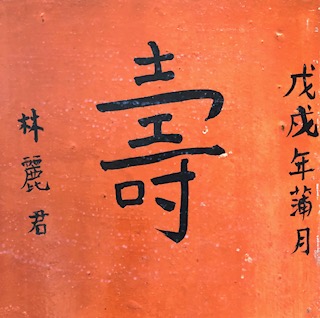 戊戌年蒲月
壽
林麗君